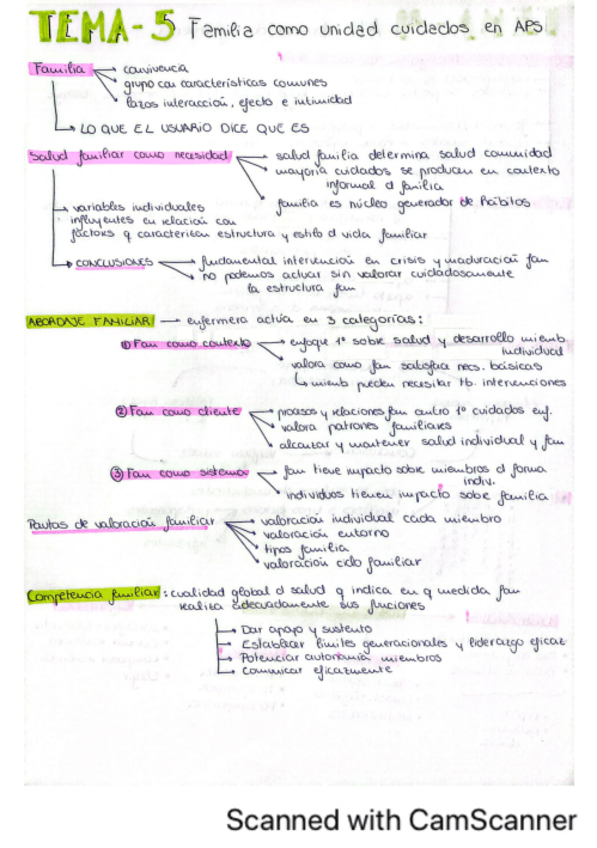 TEMA-5 Familia como unidad cuidados en APS
Familia → convivencia
→ grupo con características comunes
→ lazos interacción, efecto e intimidad
→ LO QUE EL USUARIO DICE QUE ES
Salud familiar como necesidad → salud familia determina salud comunidad
→ mayoría cuidados se producen en contexto
informal d familia
→ familia es núcleo generador de hábitos
→ variables individuales
influyentes en relación con
factores q caracterizan estructura y estilo d vida familiar
→ CONCLUSIONES → fundamental intervención en crisis y maduración fam
→ no podemos actuar sin valorar cuidadosamente
la estructura fam
ABORDAJE FAMILIAR → enfermera actúa en 3 categorías:
① Fam como contexto → enfoque 1º sobre salud y desarrollo miemb
individual
→ valora como fam satisface necs. básicas
→ miemb pueden necesitar tb. intervenciones
② Fam como cliente → procesos y relaciones fam centro 1º cuidados enf.
→ valora patrones familiares
→ alcanzar y mantener salud individual y fam
③ Fam como sistema → fam tiene impacto sobre miembros d forma
indiv.
→ individuos tienen impacto sobe familia
Pautas de valoración familiar → valoración individual cada miembro
→ valoración entorno
→ tipos familia
→ valoración ciclo familiar
Competencia familiar: cualidad global d salud q indica en q medida fam
realiza adecuadamente sus funciones
→ Dar apoyo y sustento
→ Establecer límites generacionales y liderazgo eficaz
→ Potenciar autonomía miembros
→ Comunicar eficazmente
Scanned with CamScanner